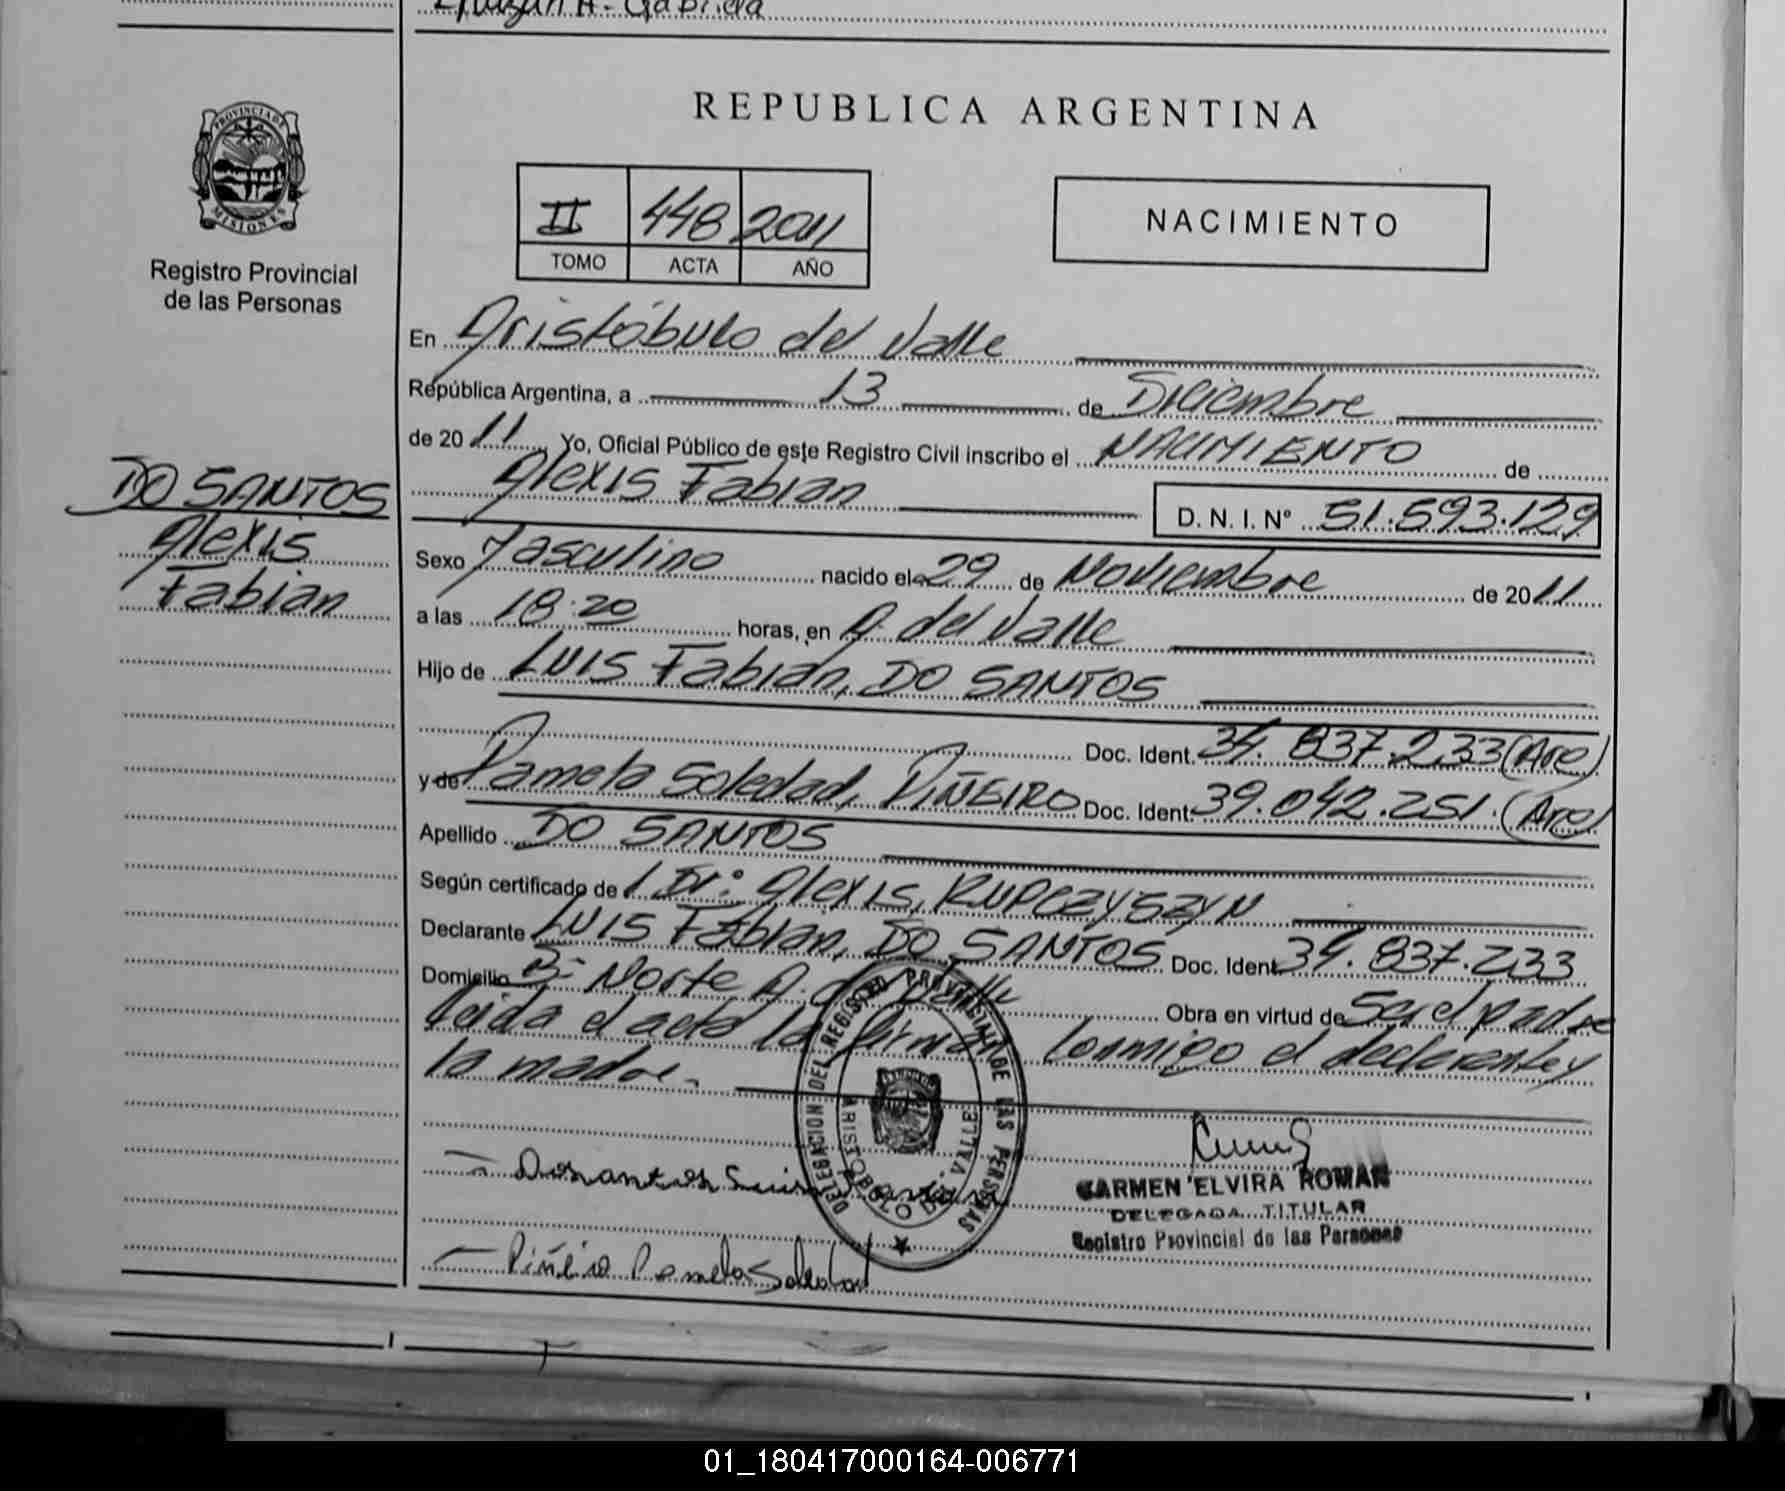 Gabriela
REPUBLICA ARGENTINA
PROVINCIA DE
MISIONES
Registro Provincial
de las Personas
II 448 2011
TOMO ACTA AÑO
NACIMIENTO
DO SANTOS
Alexis
Fabian
En Aristóbulo del Valle
República Argentina, a 13 de Diciembre
de 2011 Yo, Oficial Público de este Registro Civil inscribo el NACIMIENTO de
Alexis Fabian D. N. I. Nº 51.593.129
Sexo Masculino nacido el 29 de Noviembre de 2011
a las 18:20 horas, en A. del Valle
Hijo de LUIS Fabian, DO SANTOS
Doc. Ident. 34.837.233 (Arg)
y de Pamela Soledad, PIÑEIRO Doc. Ident. 39.042.251. (Arg)
Apellido DO SANTOS
Según certificado de Dr: Alexis, RUPCZYSZYN
Declarante LUIS Fabian, DO SANTOS Doc. Ident. 34.837.233
Domicilio Bº Norte A. del Valle Obra en virtud de Ser el padre
leida el acta la firman conmigo el declarante y
la madre.
DELEGACION DEL REGISTRO PROVINCIAL DE LAS PERSONAS
ARISTOBULO DEL VALLE
Dosantos Luis Fabian
CARMEN ELVIRA ROMAN
DELEGADA TITULAR
Registro Provincial de las Personas
Piñeiro Pamela Soledad
01_180417000164-006771